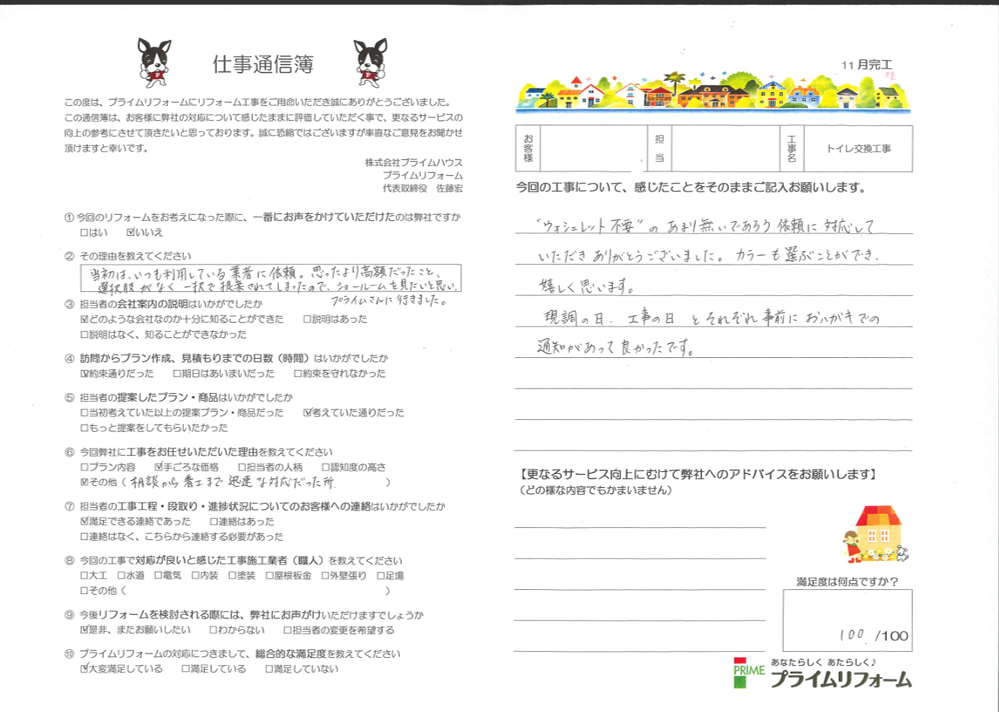 仕事通信簿
この度は、プライムリフォームにリフォーム工事をご用命いただき誠にありがとうございました。
この通信簿は、お客様に弊社の対応について感じたままに評価していただく事で、更なるサービスの
向上の参考にさせて頂きたいと思っております。誠に恐縮ではございますが率直なご意見をお聞かせ
頂けますと幸いです。
株式会社プライムハウス
プライムリフォーム
代表取締役 佐藤宏
① 今回のリフォームをお考えになった際に、一番にお声をかけていただけたのは弊社ですか
□はい ☑いいえ
② その理由を教えてください
当初は、いつも利用している業者に依頼。思ったより高額だったこと、
選択肢がなく一択で提案されてしまったので、ショールームを見たいと思い、
プライムさんに行きました。
③ 担当者の会社案内の説明はいかがでしたか
☑どのような会社なのか十分に知ることができた □説明はあった
□説明はなく、知ることができなかった
④ 訪問からプラン作成、見積もりまでの日数（時間）はいかがでしたか
☑約束通りだった □期日はあいまいだった □約束を守れなかった
⑤ 担当者の提案したプラン・商品はいかがでしたか
□当初考えていた以上の提案プラン・商品だった ☑考えていた通りだった
□もっと提案をしてもらいたかった
⑥ 今回弊社に工事をお任せいただいた理由を教えてください
□プラン内容 ☑手ごろな価格 □担当者の人柄 □認知度の高さ
☑その他（ 相談から着工まで迅速な対応だった所. ）
⑦ 担当者の工事工程・段取り・進捗状況についてのお客様への連絡はいかがでしたか
☑満足できる連絡であった □連絡はあった
□連絡はなく、こちらから連絡する必要があった
⑧ 今回の工事で対応が良いと感じた工事施工業者（職人）を教えてください
□大工 □水道 □電気 □内装 □塗装 □屋根板金 □外壁張り □足場
□その他（ ）
⑨ 今後リフォームを検討される際には、弊社にお声がけいただけますでしょうか
☑是非、またお願いしたい □わからない □担当者の変更を希望する
⑩ プライムリフォームの対応につきまして、総合的な満足度を教えてください
☑大変満足している □満足している □満足していない
11月完工
お客様 担当 工事名 トイレ交換工事
今回の工事について、感じたことをそのままご記入お願いします。
"ウォシュレット不要"の あまり無いであろう依頼に対応して
いただきありがとうございました。カラーも選ぶことができ、
嬉しく思います。
現調の日、工事の日 とそれぞれ事前におハガキでの
通知があって良かったです。
【更なるサービス向上にむけて弊社へのアドバイスをお願いします】
（どの様な内容でもかまいません）
満足度は何点ですか？
100 /100
PRIME
あなたらしく あたらしく♪
プライムリフォーム